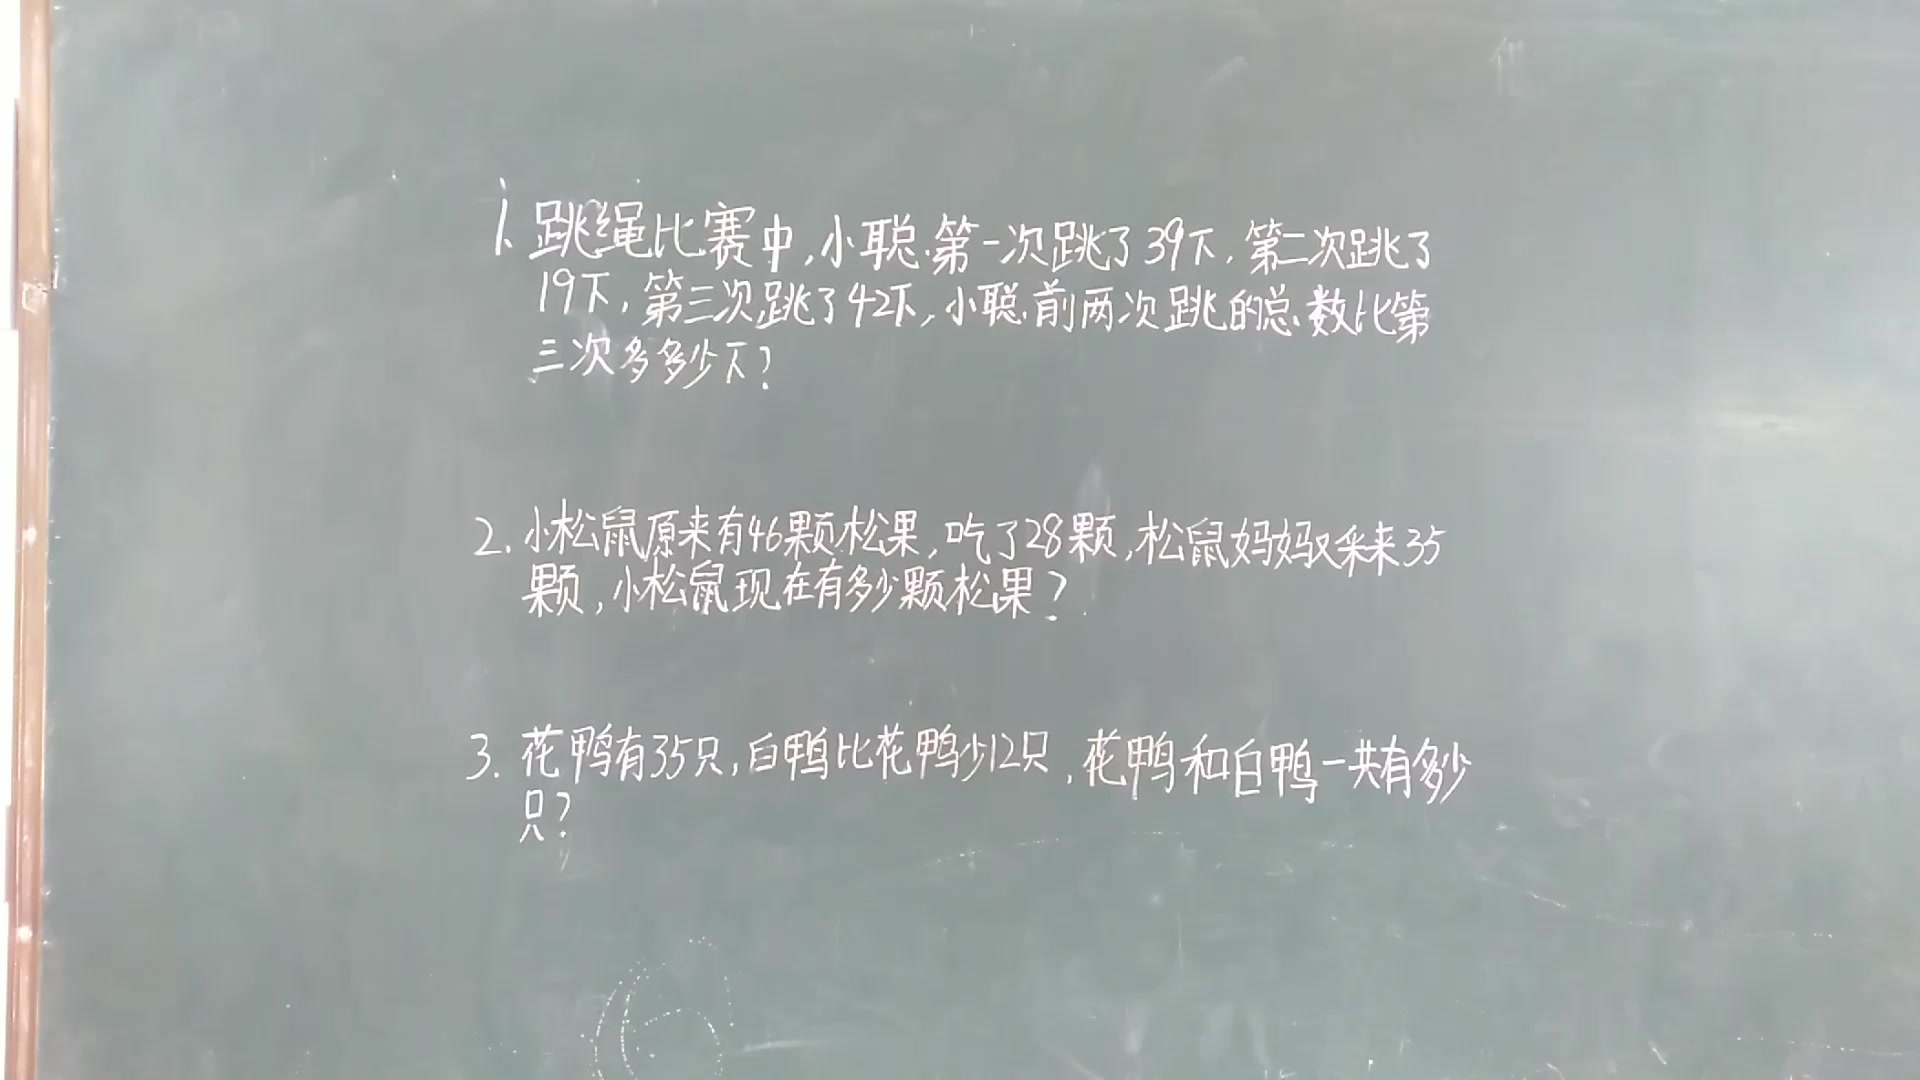 1. 跳绳比赛中,小聪第一次跳了39下,第二次跳了
19下,第三次跳了42下,小聪前两次跳的总数比第
三次多多少下?
2. 小松鼠原来有46颗松果,吃了28颗,松鼠妈妈又采来35
颗,小松鼠现在有多少颗松果?
3. 花鸭有35只,白鸭比花鸭少12只,花鸭和白鸭一共有多少
只?